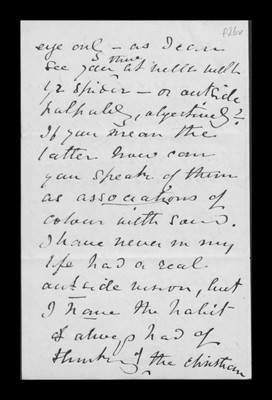 eye only - as I can
see you there at well with
yr spider - or outside
palpably, objectively?
If you mean the
latter how can
you speak of them
as associations of
colour with sound.
I have never in my
life had a real
outside vision, but
I have the habit
& always had of
thinking of the Christian